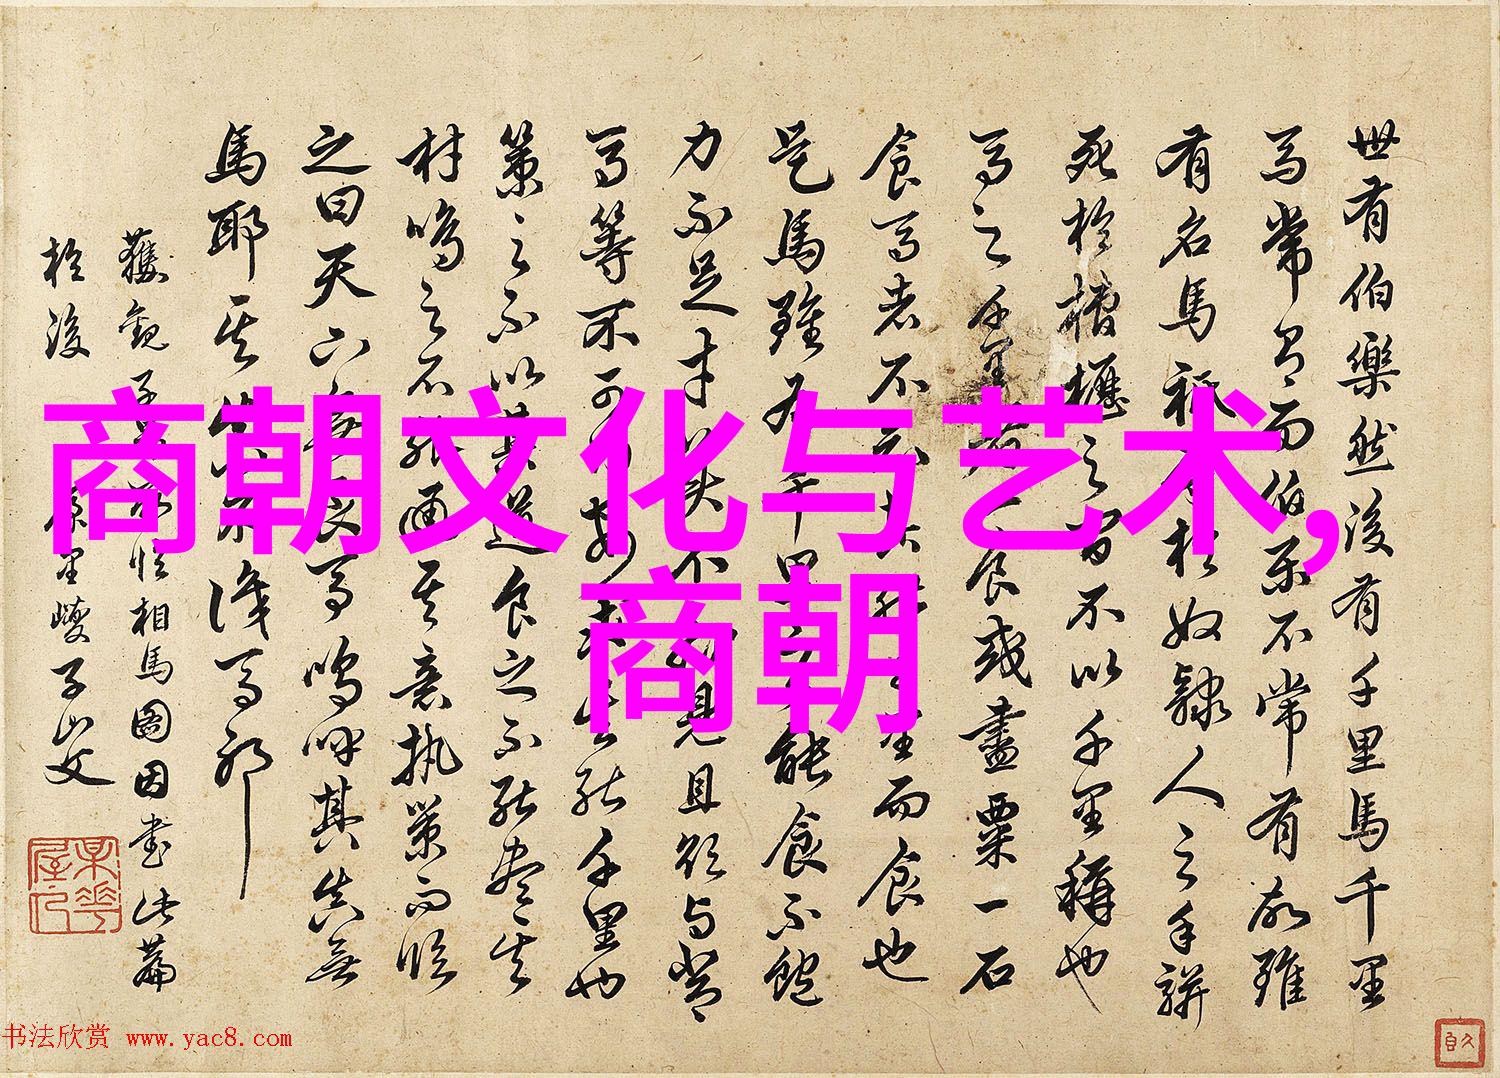 商朝文化与艺术,
商朝
世有伯樂然後有千里馬千里
馬常有而伯樂不常有故雖
有名馬祗辱於奴隸人之手駢
死於槽櫪之間不以千里稱也
馬之千里者一食或盡粟一石
食馬者不知其能千里而食也
是馬雖有千里之能食不飽
力不足才美不外見且欲與常
馬等不可得安求其能千里也
策之不以其道食之不能盡其
材鳴之不能通其意執策而臨
之曰天下無良馬嗚呼其真無
馬耶其真不識馬耶
獲觀子 相馬圖因書此篇
於後 康里巎子山父
书法欣赏 www.yac8.com